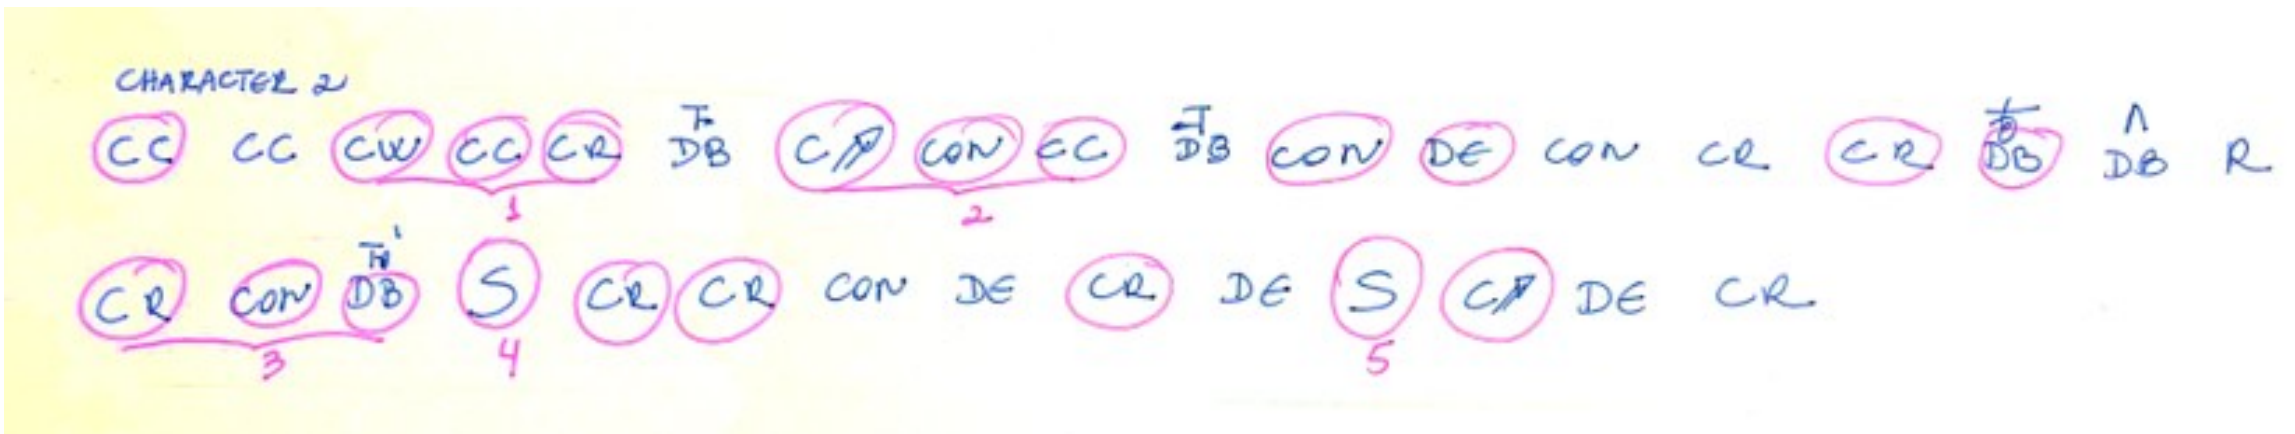 CHARACTER 2
CC CC CW CC CR DB CON CC DB CON DE CON CR CR DB DB R
1 2
CR CON DB S CR CR CON DE CR DE S DE CR
3 4 5